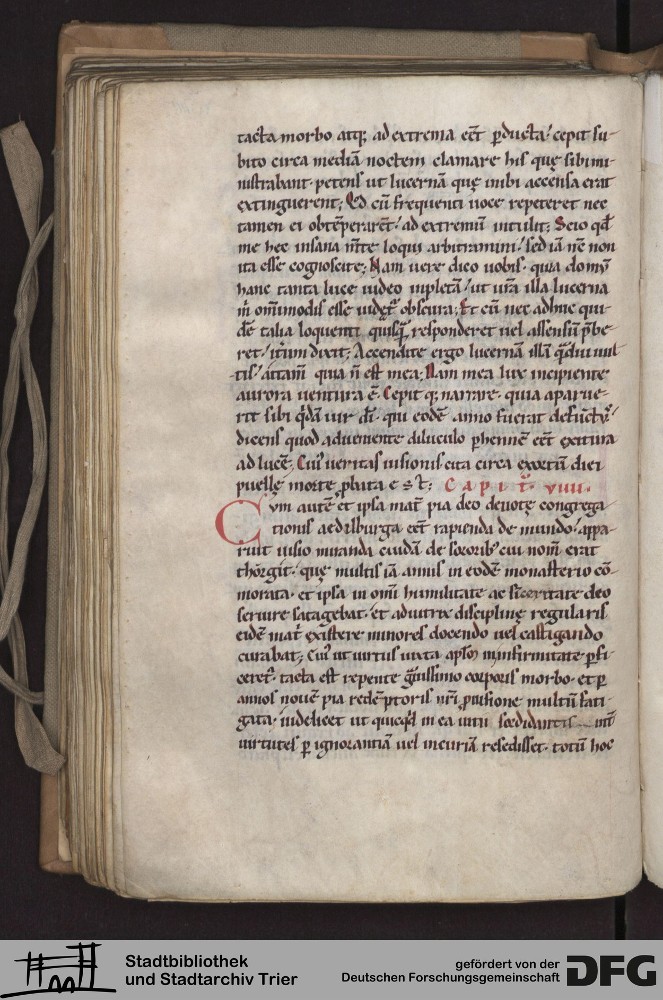 tacta morbo atq; ad extrema eēt ꝑducta / cepit su-
bito circa mediā noctem clamare his quę sibi mi-
nistrabant · petens ut lucernā quę inibi accensa erat
extinguerent; Qd cū frequenti uoce repeteret nec
tamen ei obtēperarent / ad extremū intulit; Scio qd̄
me hec insana m̄te loqui arbitramini / sed iā nē non
ita esse cognoscite; Nam uere dico uobis · quia domū
hanc tanta luce uideo inpletā / ut ur̄a illa lucerna
m̄ om̄imodis esse uideꞇ̄ obscura; Et cū nec adhuc qui-
dē talia loquenti quisq̄ responderet uel assensū p̄be-
ret / itūm dixit; Accendite ergo lucernā illā q̄diu uul-
tis / attam̄ quia n̄ est mea; Nam mea lux incipiente
aurora uentura ē · Cepit q; narrare · quia aparue-
rit sibi q̄dā uir dī · qui eodē anno fuerat defunctꝰ /
dicens quod adueniente diluculo ꝑhennē eēt exitura
ad lucē; Cuiꝰ ueritas uisionis cita circa exortū diei
puellę morte ꝓbata est; Capiꞇ̄ · VIIII ·
Cvm autē et ipsa mat̄ pia deo deuotę congrega
tionis aedilburga eēt rapienda de mundo / appa-
ruit uisio miranda cuidā de sororib; cui nom̄ erat
thorgit · quę multis iā annis in eodē monasterio cō-
morata · et ipsa in omī humilitate ac sinceritate deo
seruire satagebat · et adiutrix disciplinę regularis
eidē mat̄i existere minores docendo uel castigando
curabat; Cuiꝰ ut uirtus iuxta apl̄m in infirmitate ꝑfi-
cereꞇ̄ · tacta est repente g̃uissimo corporis morbo · et ꝑ
annos nouē pia redēptoris nr̄i ꝓuisione multū fati-
gata · uidelicet ut quicqd in ea uitii sordidantis int̄
uirtutes ꝑ ignorantiā uel incuriā resedisset · totū hoc
Stadtbibliothek
und Stadtarchiv Trier
gefördert von der
Deutschen Forschungsgemeinschaft
DFG